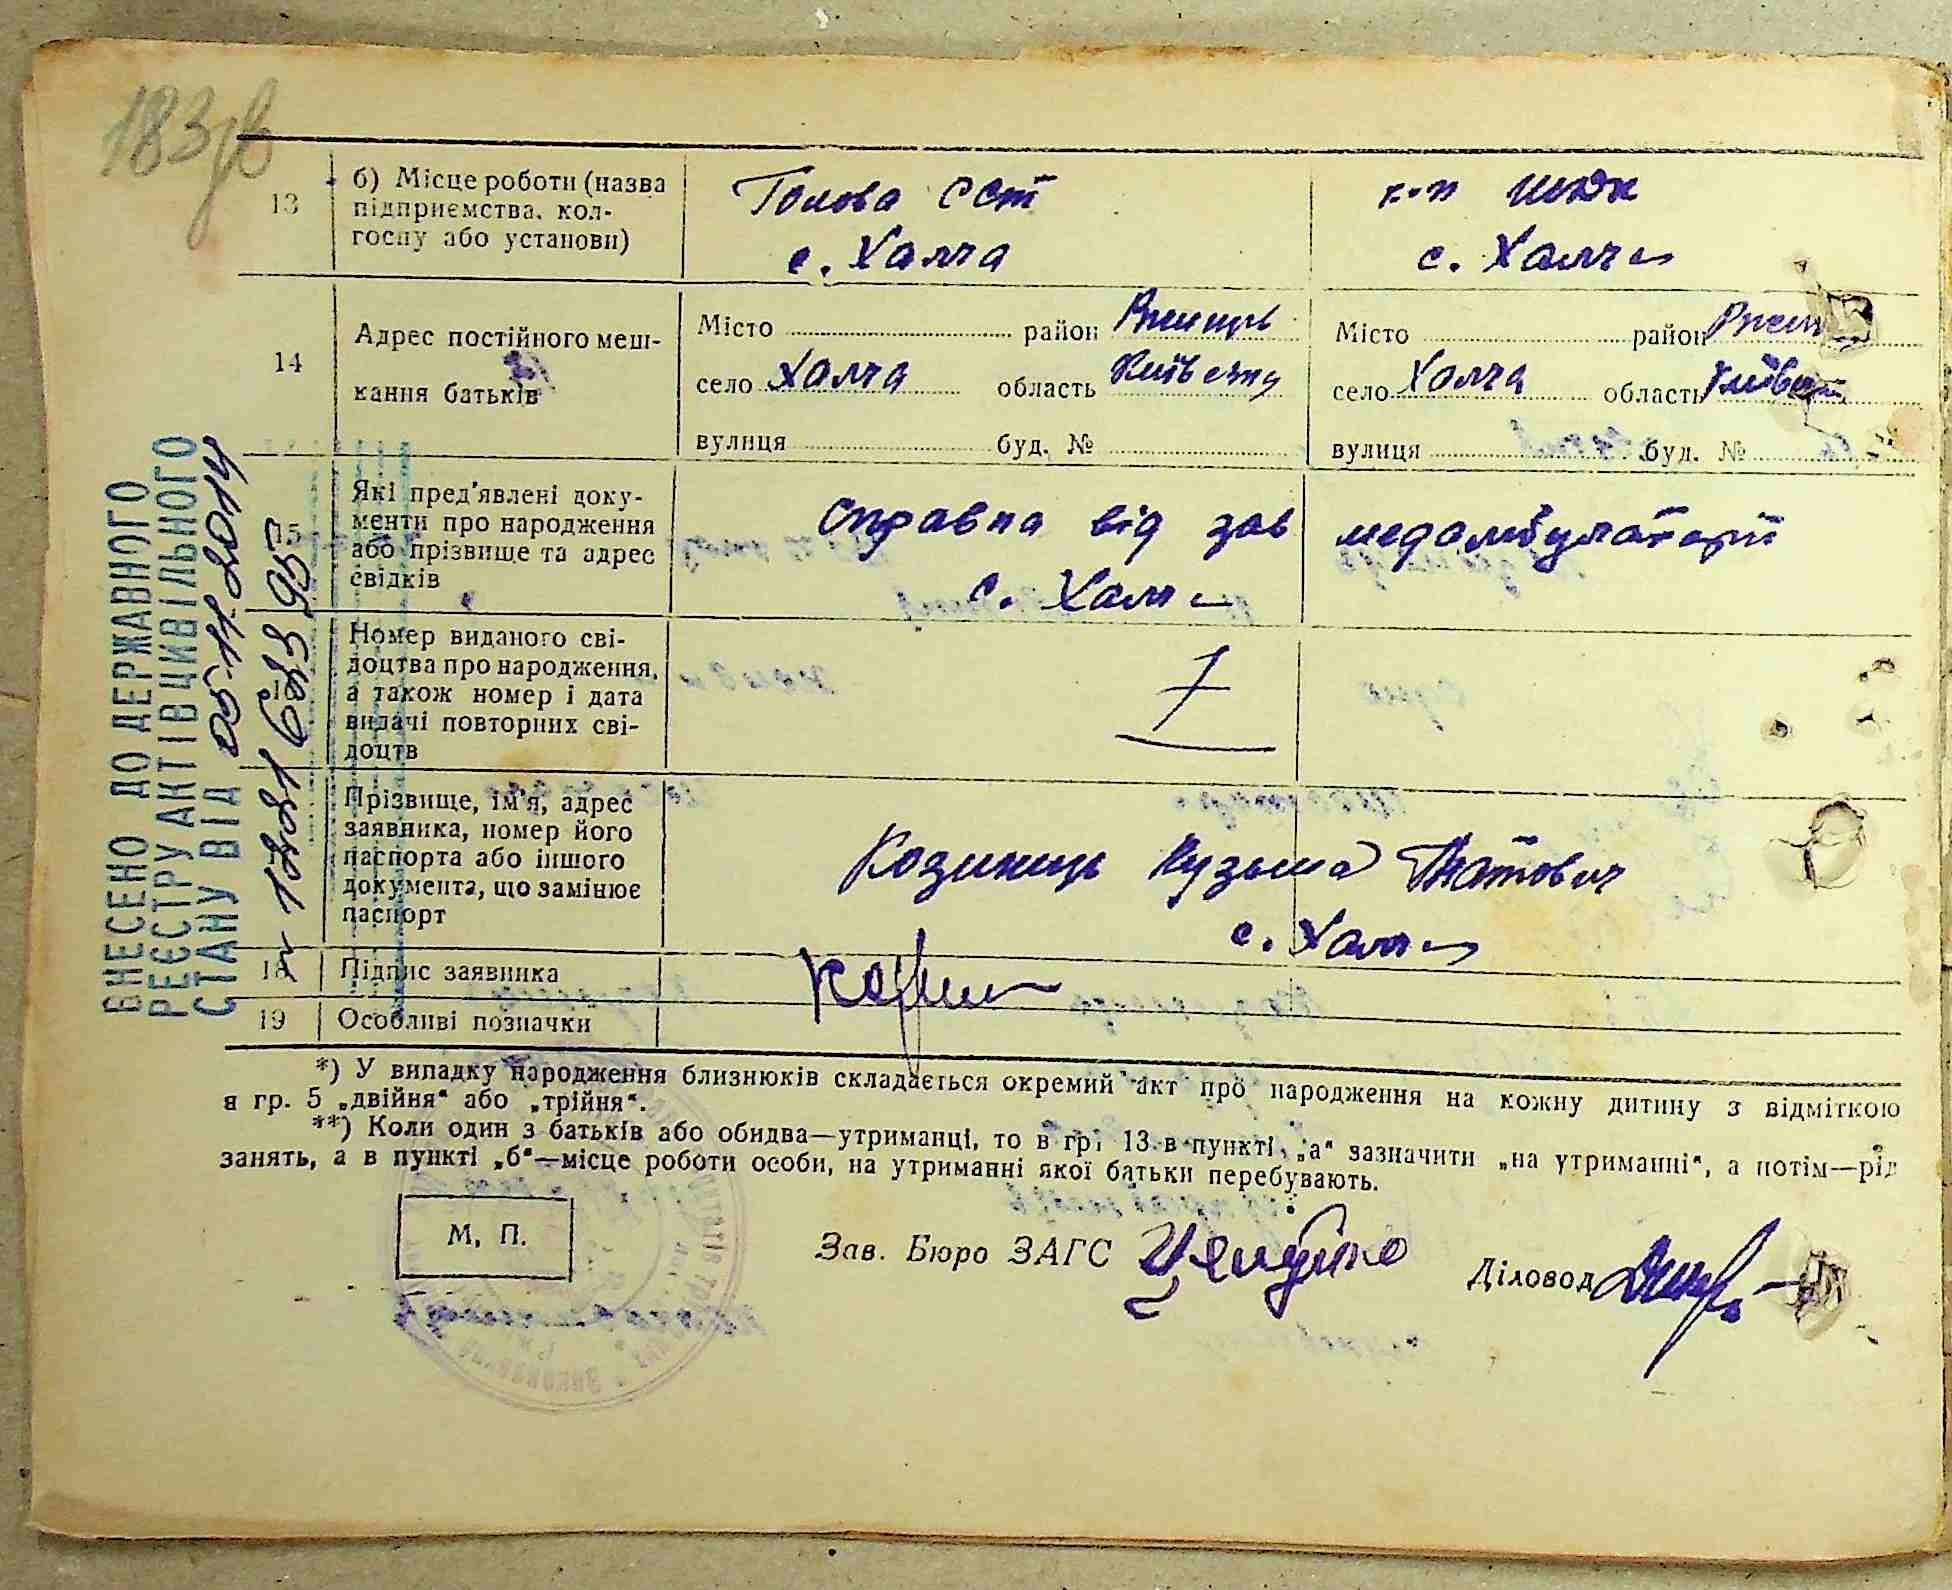 183 зв
13
б) Місце роботи (назва
підприємства, кол-
госпу або установи)
Голова ССТ
с. Халча
с. Халча
14
Адрес постійного меш-
кання батьків
Місто район Ржищів
село Халча область Київська
вулиця буд. №
Місто район
село Халча область
вулиця буд. №
15
Які пред'явлені доку-
менти про народження
або прізвище та адрес
свідків
Справка від зав медамбулаторії
с. Халча
Номер виданого сві-
доцтва про народження,
а також номер і дата
видачі повторних сві-
доцтв
7
Прізвище, ім'я, адрес
заявника, номер його
паспорта або іншого
документа, що замінює
паспорт
Козинець Кузьма Гнатович
с. Халча
18
Підпис заявника
19
Особливі позначки
ВНЕСЕНО ДО ДЕРЖАВНОГО
РЕЄСТРУ АКТІВ ЦИВІЛЬНОГО
СТАНУ ВІД 05.11.2014
*) У випадку народження близнюків складається окремий акт про народження на кожну дитину з відміткою
в гр. 5 „двійня“ або „трійня“.
**) Коли один з батьків або обидва—утриманці, то в гр. 13 в пункті „а“ зазначити „на утриманні“, а потім—рід
занять, а в пункті „б“—місце роботи особи, на утриманні якої батьки перебувають.
М. П.
Зав. Бюро ЗАГС
Діловод